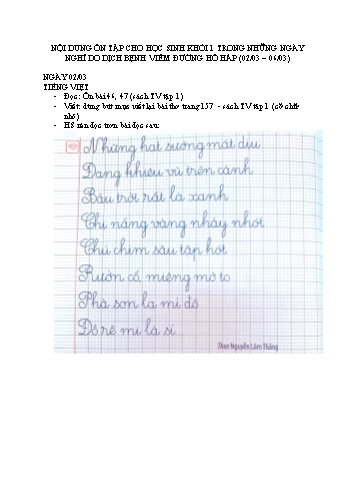 NỘI DUNG ÔN TẬP CHO HỌC SINH KHỐI 1 TRONG NHỮNG NGÀY
NGHỈ DO DỊCH BỆNH VIÊM ĐƯỜNG HÔ HẤP (02/03 – 06/03)
NGÀY 02/03
TIẾNG VIỆT
- Đọc: Ôn bài 46, 47 (sách TV tập 1)
- Viết: dùng bút mực viết lại bài thơ trang 157 - sách TV tập 1 (cỡ chữ
nhỏ)
- HS rèn đọc trơn bài đọc sau:
Những hạt sương mát dịu
Đang khiêu vũ trên cành
Bầu trời rất là xanh
Chị nắng vàng nhảy nhót
Chú chim sâu tập hót
Rướn cổ, miệng mở to
Phà son la mi đồ
Đồ rê mi là sí...
Theo Nguyễn Lãm Thắng